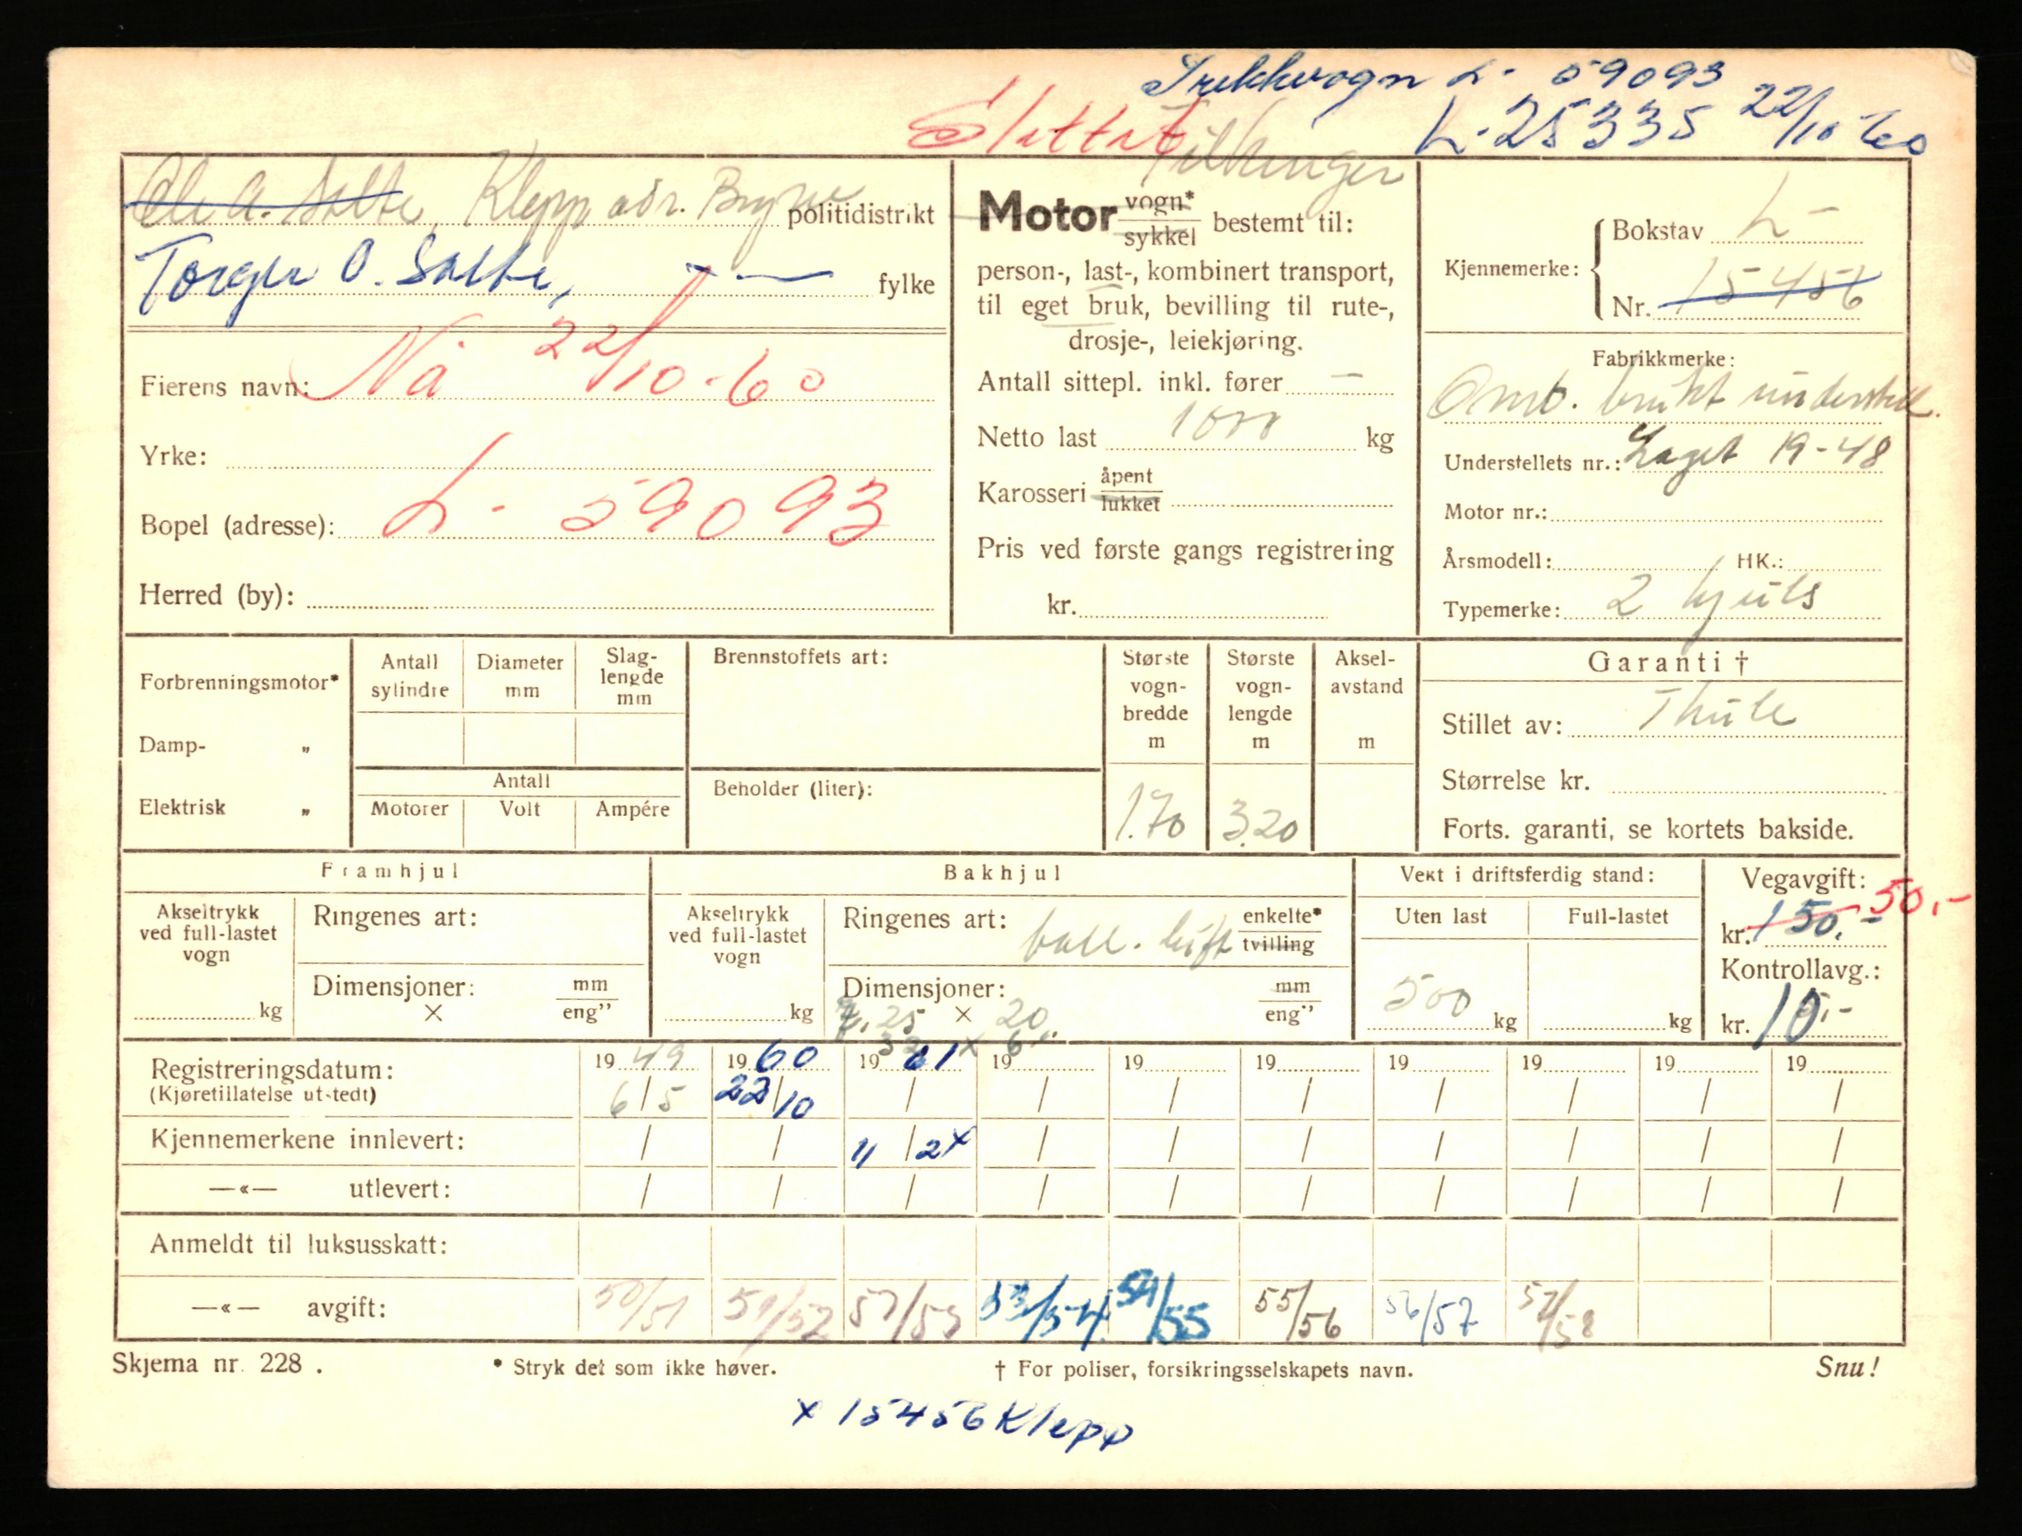 Trekkvogn L- 59093
Slettet L-25335 22/10-60
Tilhenger
Ole A. Salte, Klepp adr. Bryne politidistrikt
Torger O. Salte, - — fylke
Fierens navn: Nå 22/10-60
Yrke:
Bopel (adresse): L- 59093
Herred (by):
Motor vogn* sykkel bestemt til:
person-, last-, kombinert transport,
til eget bruk, bevilling til rute-,
drosje-, leiekjøring.
Antall sittepl. inkl. fører —
Netto last 1000 kg
Karosseri åpent lukket
Pris ved første gangs registrering
kr.
Kjennemerke: Bokstav L-
Nr. 15456
Fabrikkmerke:
Omb. brukt understell.
Understellets nr.: Laget 19-48
Motor nr.:
Årsmodell: HK.:
Typemerke: 2 hjuls
Forbrenningsmotor*
Damp- „
Elektrisk „
Antall sylindre
Diameter mm
Slag-lengde mm
Antall
Motorer Volt Ampére
Brennstoffets art:
Beholder (liter):
Største vogn-bredde m 1.70
Største vogn-lengde m 3.20
Aksel-avstand m
Garanti †
Stillet av: Thule
Størrelse kr.
Forts. garanti, se kortets bakside.
Framhjul
Akseltrykk ved full-lastet vogn kg
Ringenes art:
Dimensjoner: × mm eng"
Bakhjul
Akseltrykk ved full-lastet vogn kg
Ringenes art: ball. luft enkelte* tvilling
Dimensjoner: × mm eng"
25 20
32 x 6"
Vekt i driftsferdig stand:
Uten last Full-lastet
500 kg kg
Vegavgift: 50,-
kr. 150.-
Kontrollavg.:
kr. 10.-
Registreringsdatum: 1949 1960 1961 19 19 19 19 19 19 19
(Kjøretillatelse utstedt) 6/5 22/10 / / / / / / / /
Kjennemerkene innlevert: / / 11/2 x / / / / / / /
—«— utlevert: / / / / / / / / / /
Anmeldt til luksusskatt:
—«— avgift: 50/51 51/52 52/53 53/54. 54/55 55/56 56/57 57/58
Skjema nr. 228 .
* Stryk det som ikke høver.
† For poliser, forsikringsselskapets navn.
Snu!
x 15456 Klepp